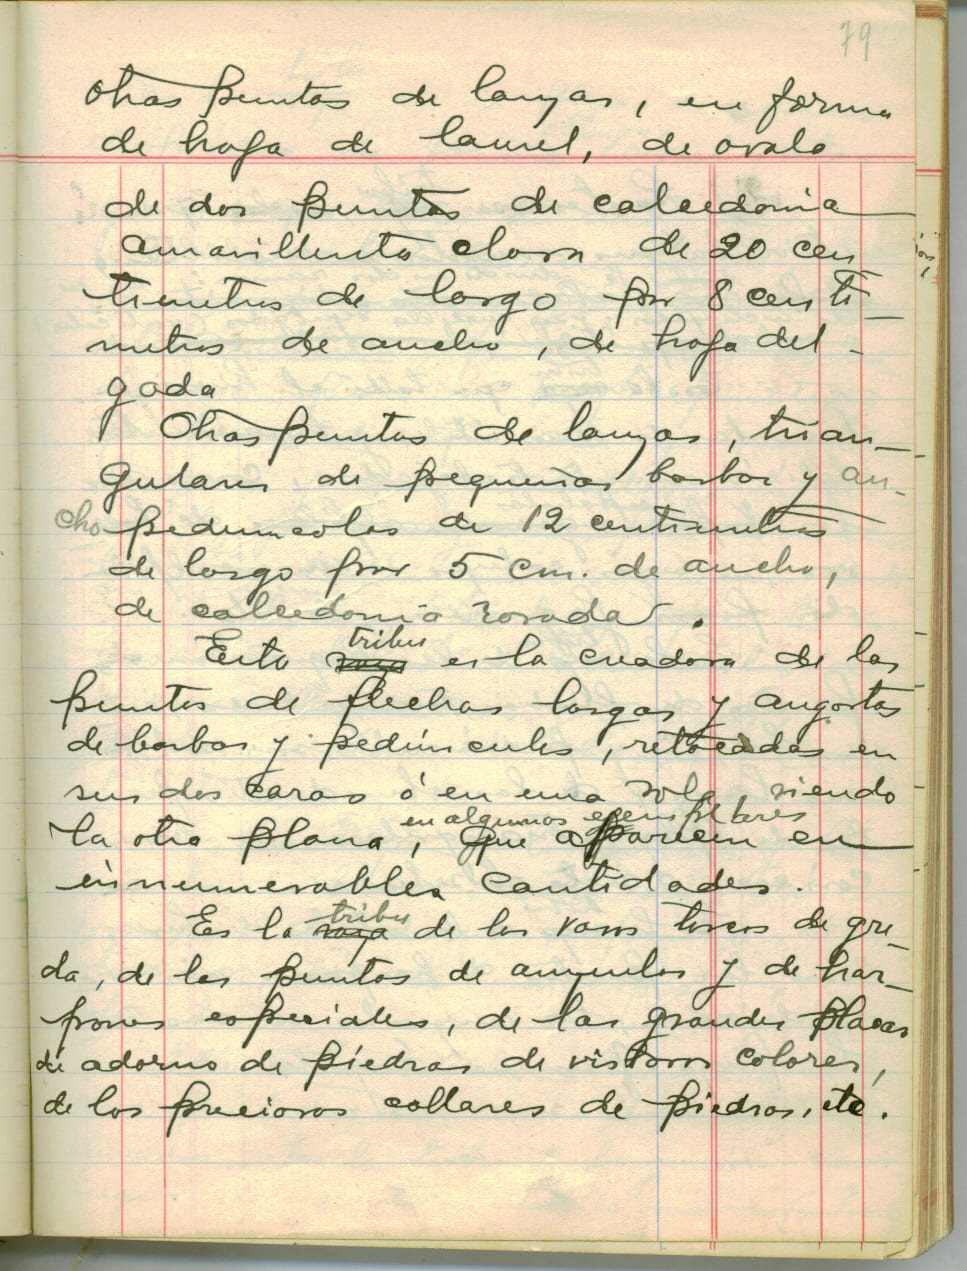 79
otras puntas de lanzas, en forma
de hoja de laurel, de ovalo
de dos puntas de calcedonia
amarillenta clara de 20 cen
timetros de largo por 8 centi-
metros de ancho, de hoja del-
gada
Otras puntas de lanzas, trian-
gulares de pequeñas barbas y an-
cho pedunculos de 12 centimetros
de largo por 5 cm. de ancho,
de calcedonia rosada.
tribu
Esta raza es la creadora de las
puntas de flechas largas y angostas
de barbas y pedúnculos, retocadas en
sus dos caras ó en una sola, siendo
en algunos ejemplares
la otra plana, que aparecen en
innumerables cantidades.
tribu
Es la raza de los vasos toscos de gre-
da, de las puntas de anzuelos y de har-
pones especiales, de las grandes placas
de adorno de piedras de vistosos colores,
de los preciosos collares de piedras, etc.